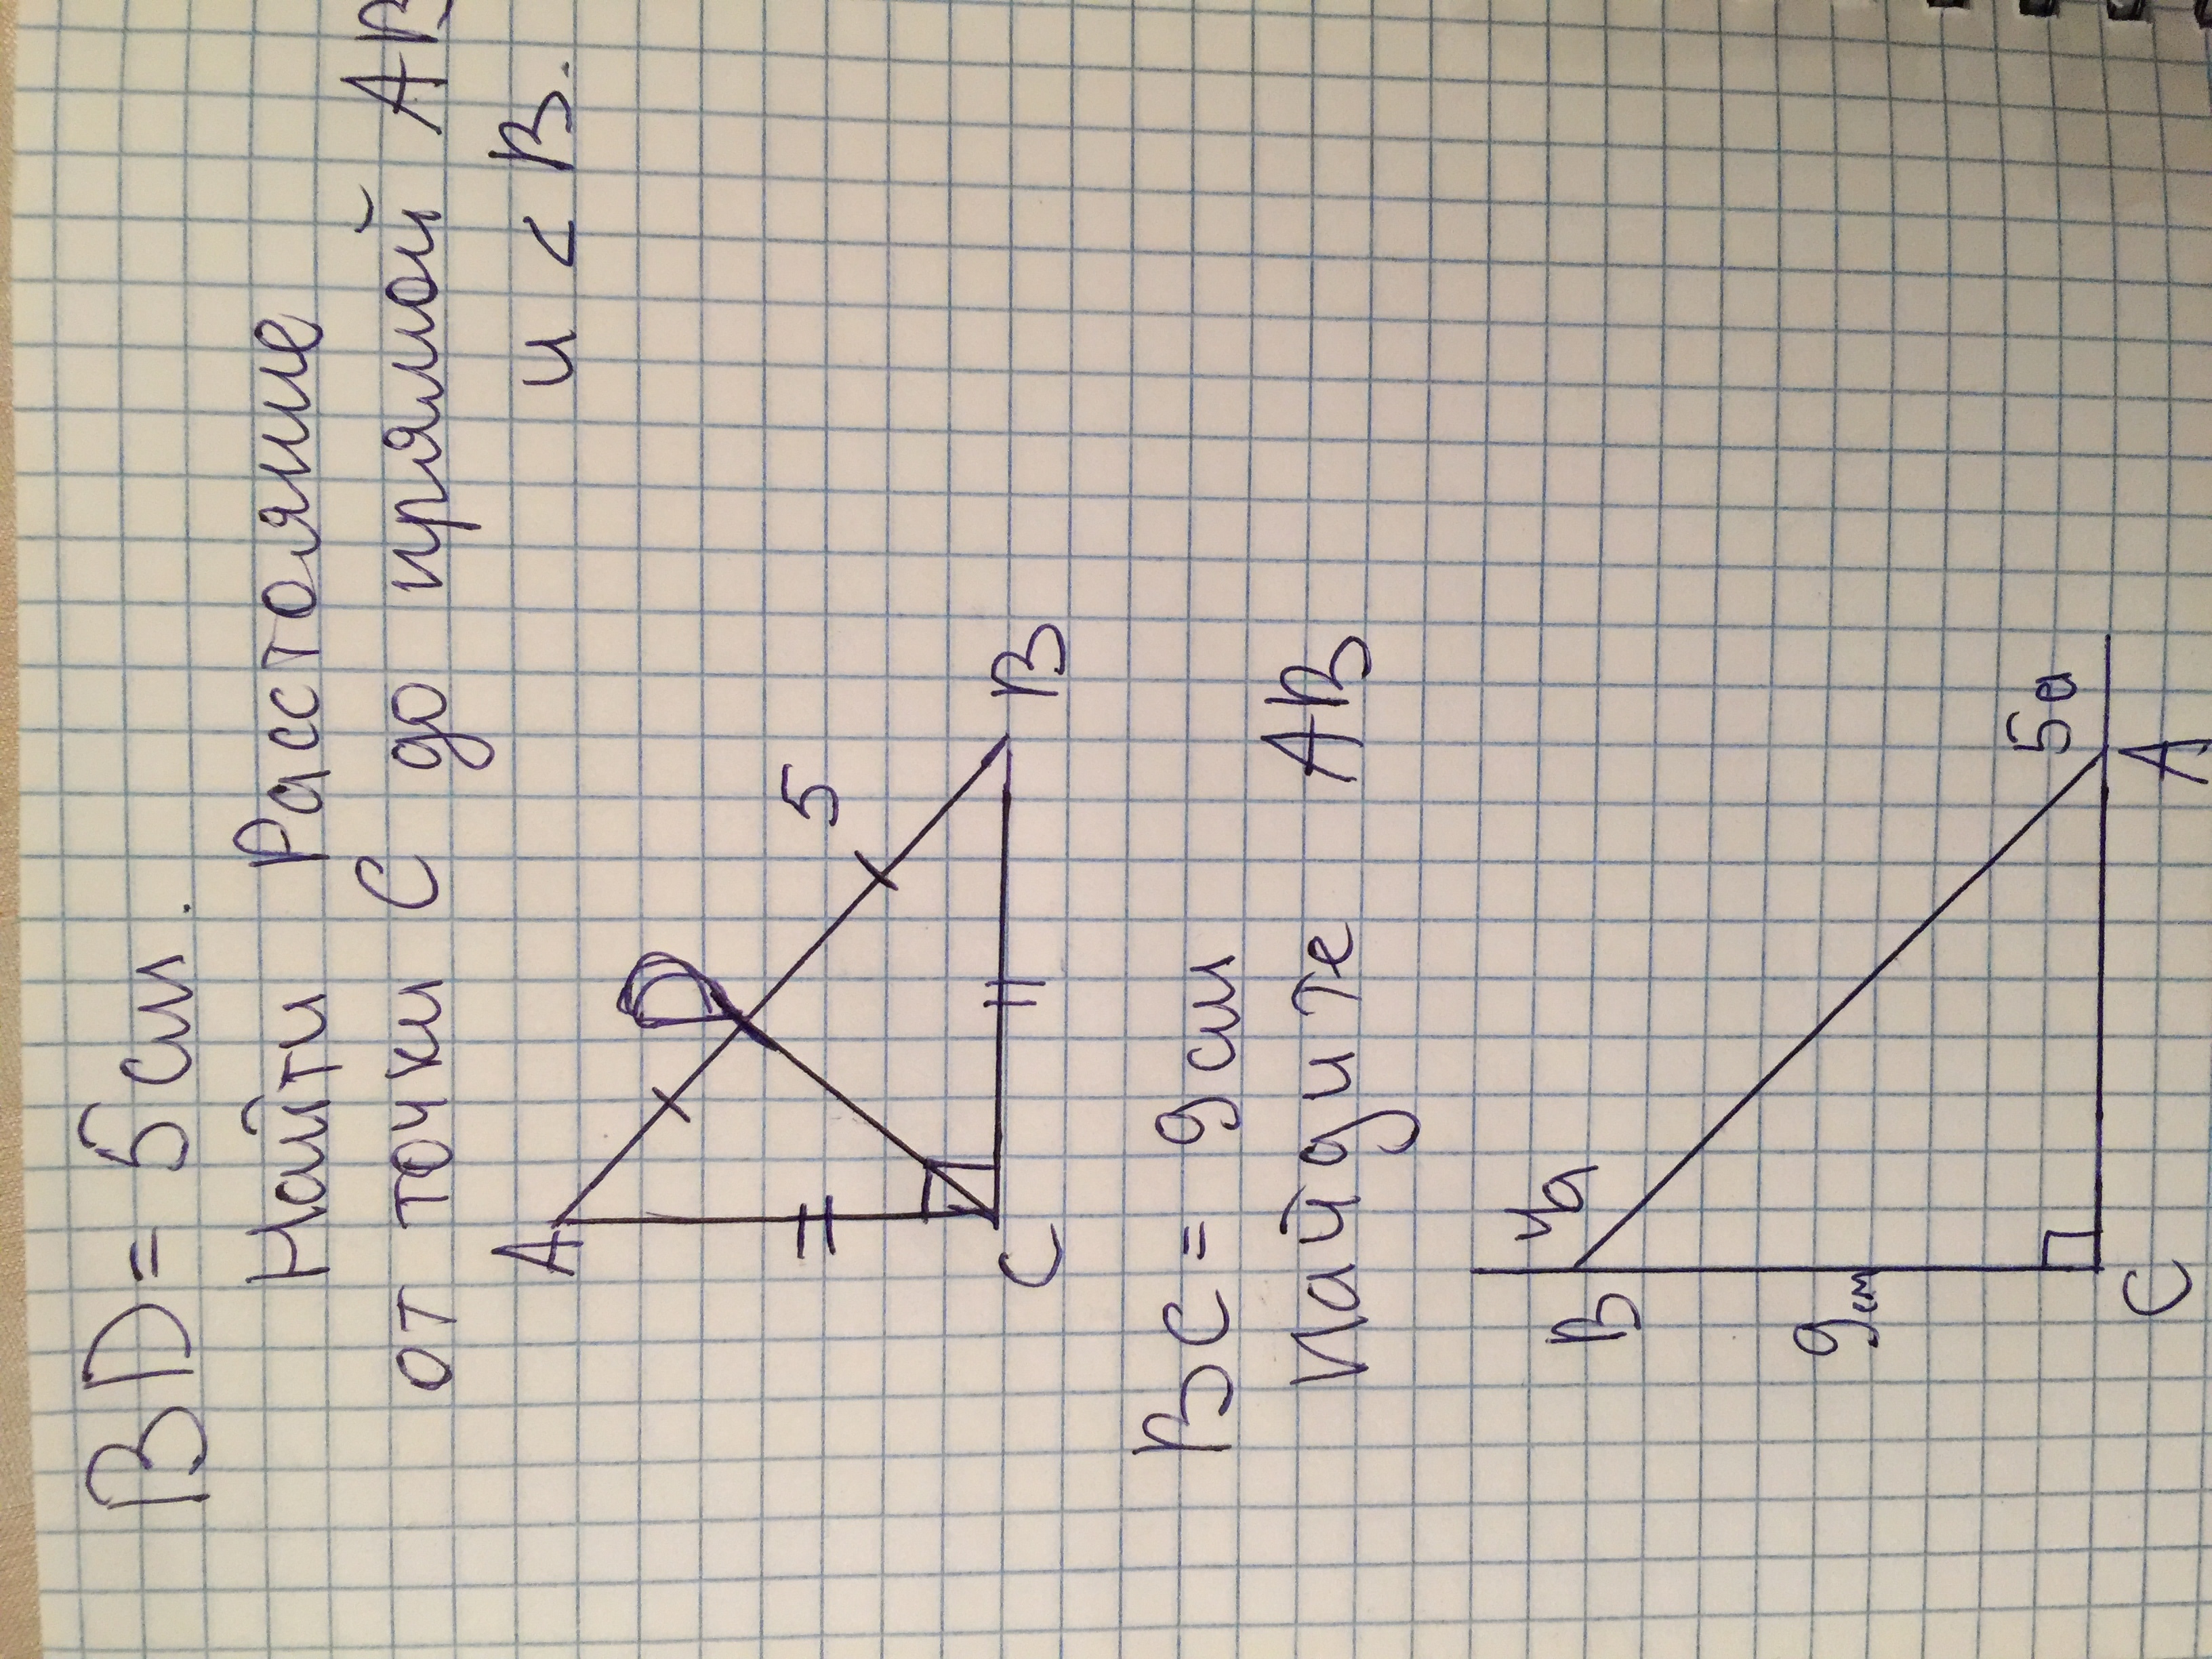 BD = 5 см.
Найти Растояние
от точки С до прямой АВ
и < В.
A
D
5
C
B
BC = 9 см
найдите AB
4a
B
9см
5a
C
A